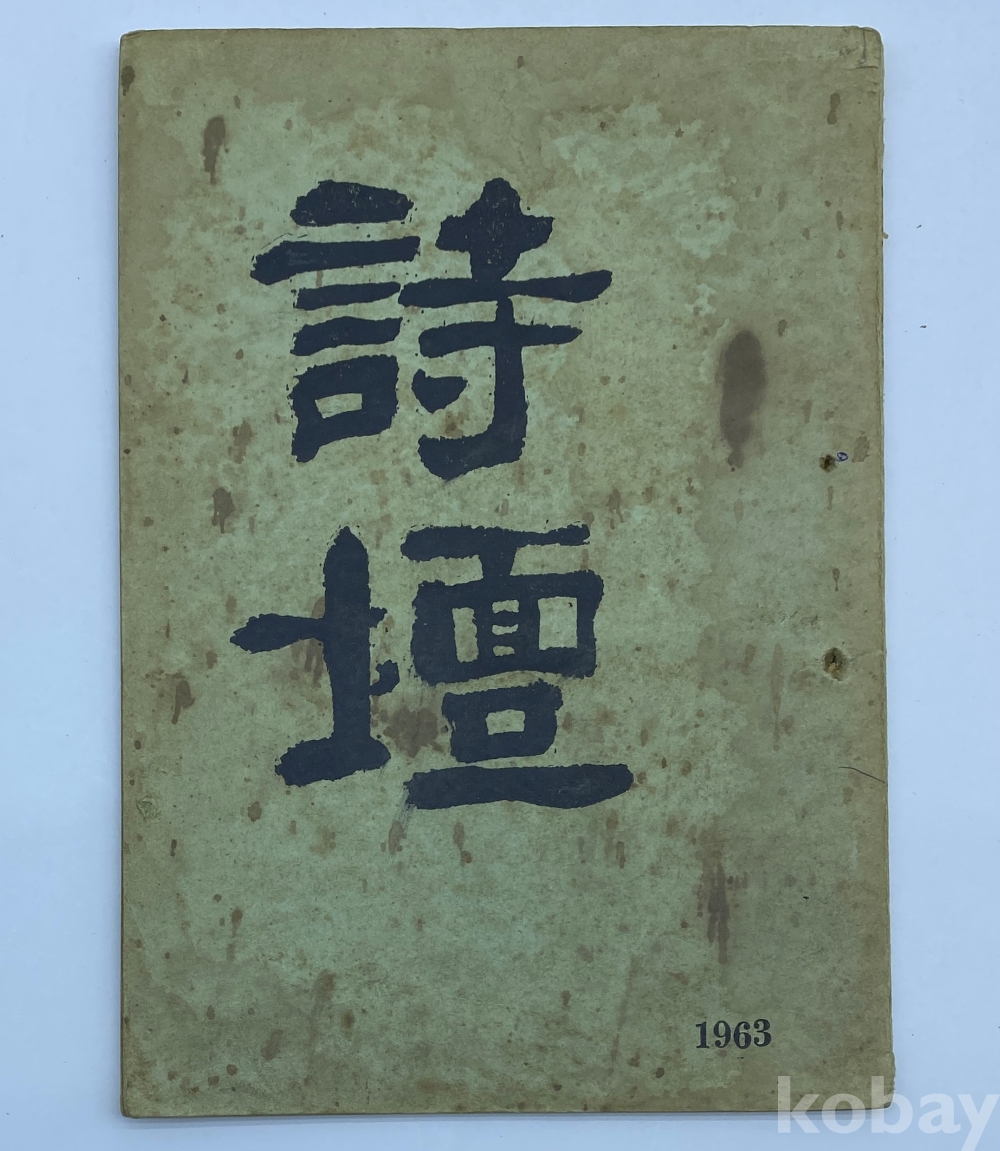 詩
壇
1963
kobay